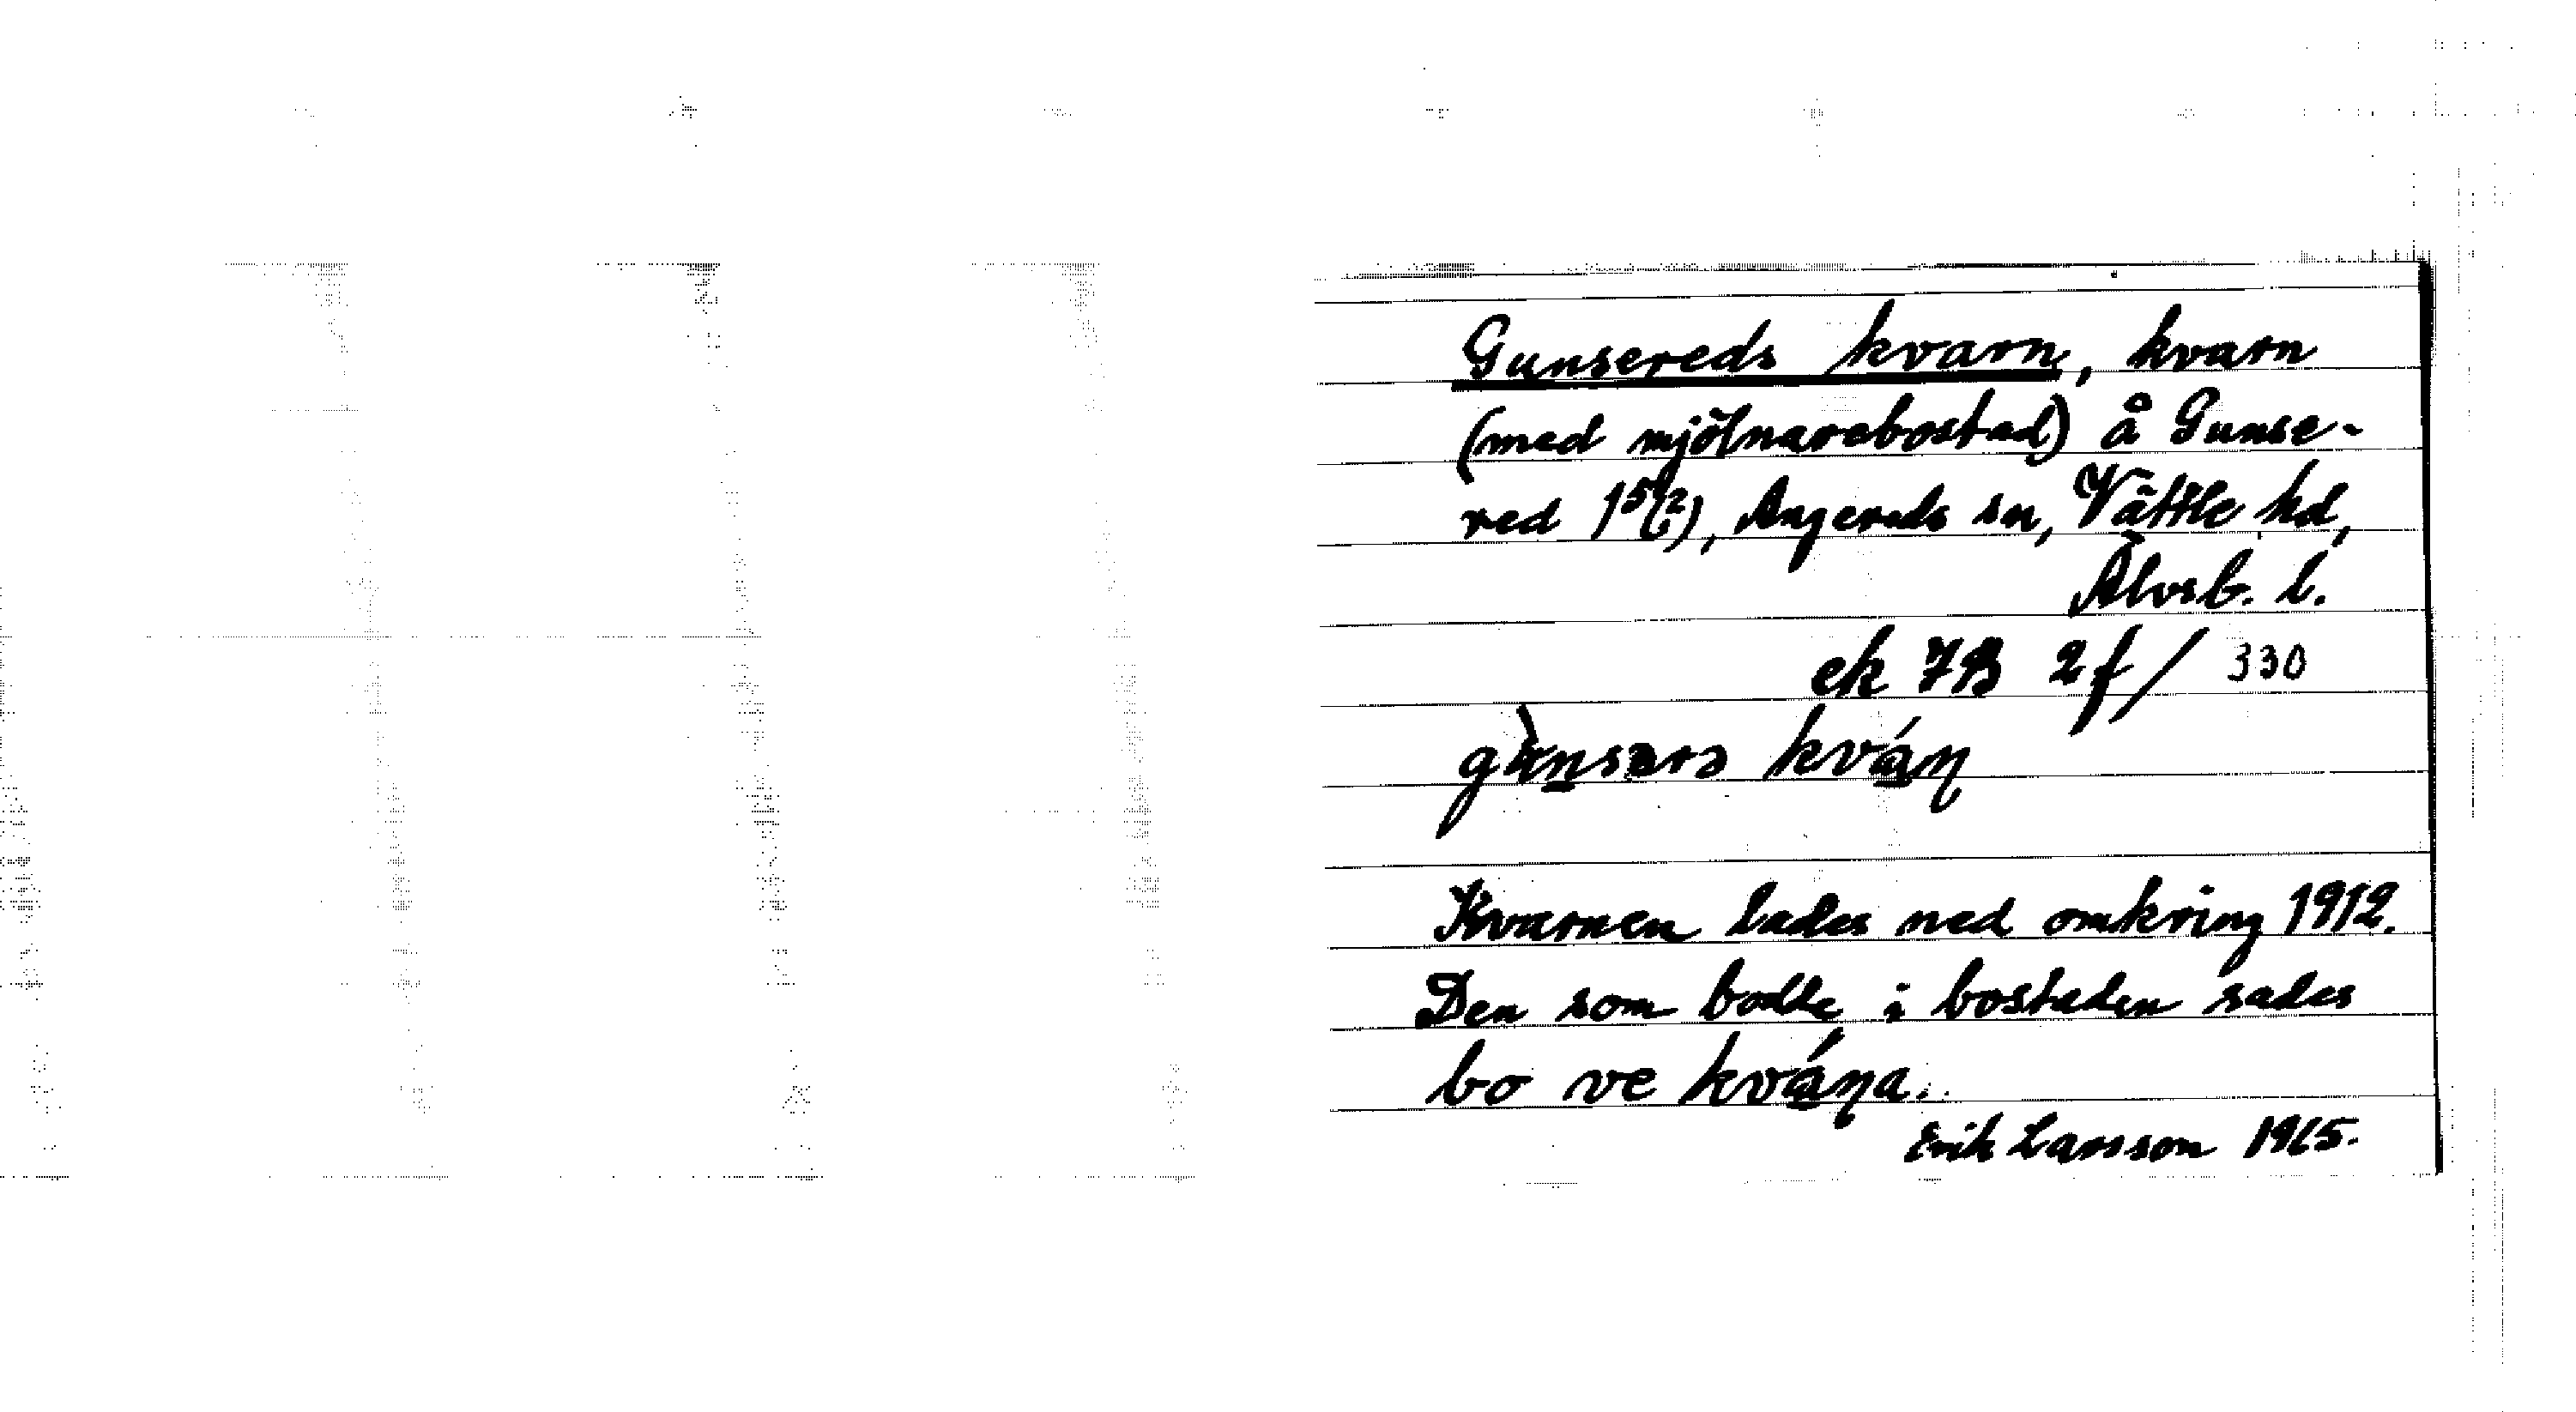 Gunsereds kvarn, kvarn
(med mjölnarebostad) å Gunse-
red 1⁵(²), Angereds sn, Vättle hd,
Älvsb. l.
ek 7B 2f/ 330
gùnsərs kván
Kvarnen lades ned omkring 1912.
Den som bodde i bostaden sades
bo ve kvána.
Erik Larsson 1965.